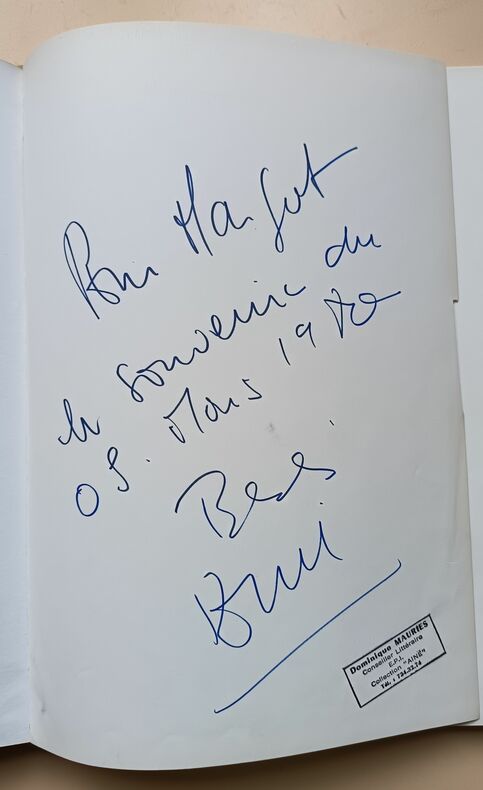 Pour Margot
le souvenir du
08. Mars 1980
Dominique MAURIES
Conseiller Littéraire
E.P.I.
Collection "AINÉ"
Tél. : 734.32.76